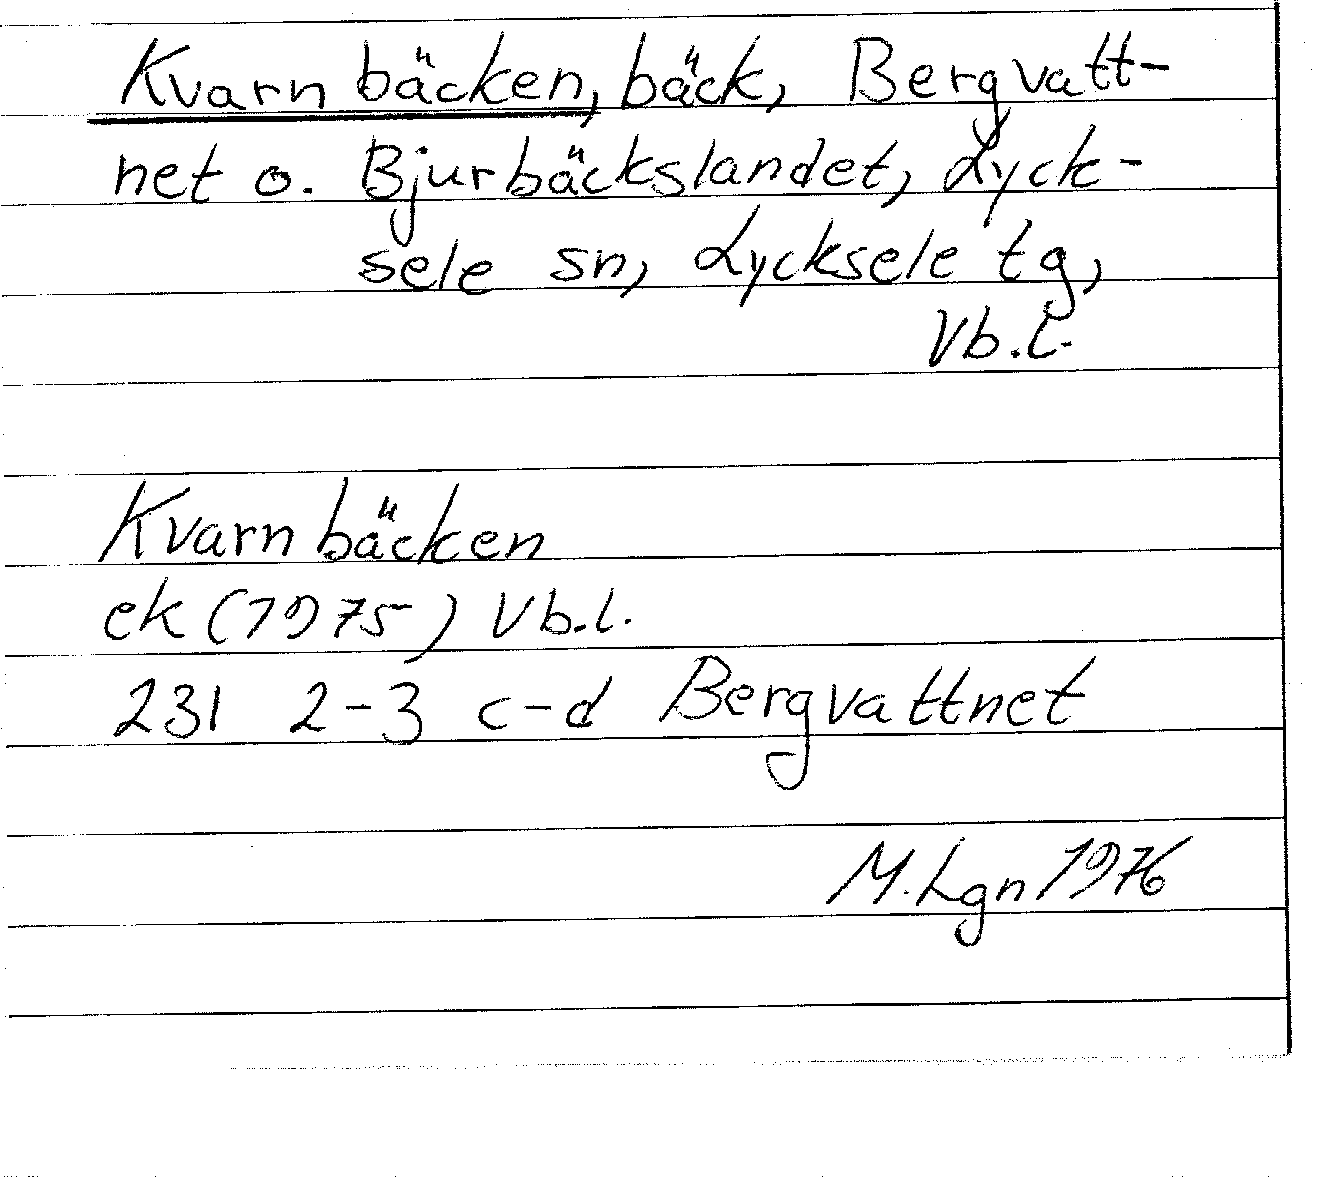 Kvarnbäcken, bäck, Bergvatt-
net o. Bjurbäckslandet, Lyck-
sele sn, Lycksele tg,
Vb.l.
Kvarnbäcken
ek (1975) Vb.l.
231 2-3 c-d Bergvattnet
M.Lgn 1976